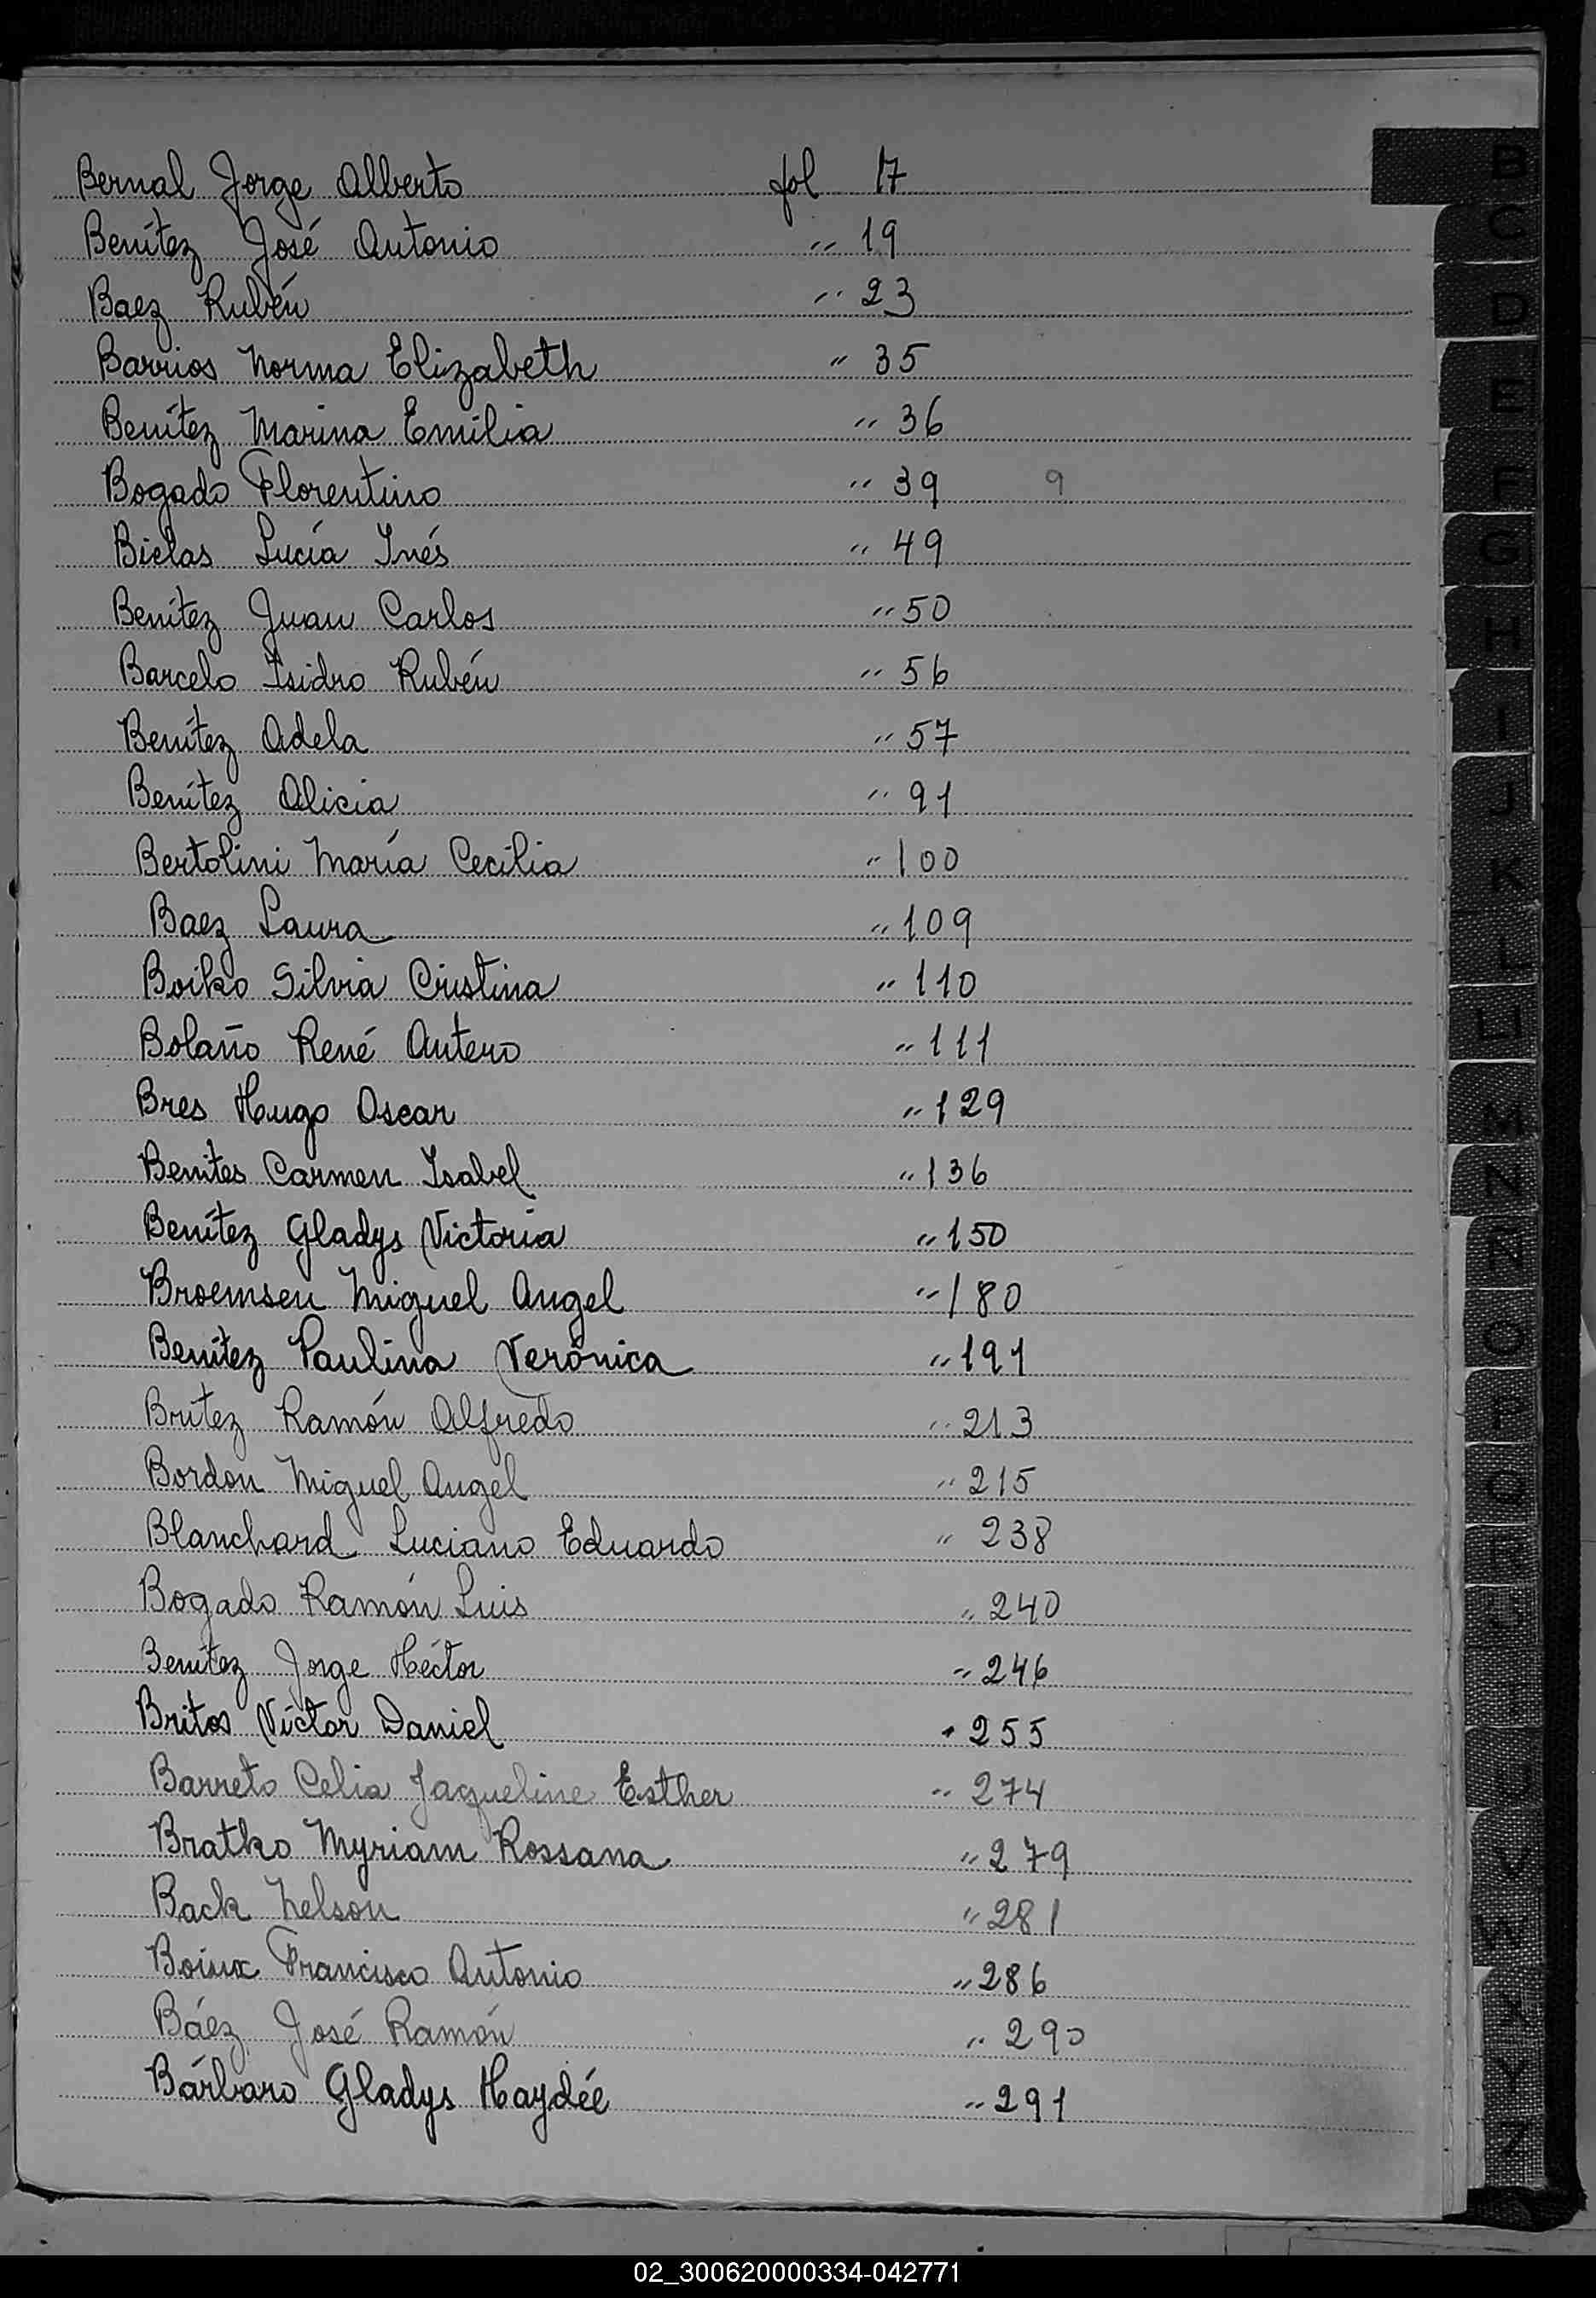 Bernal Jorge Alberto fol 17
Benítez José Antonio " 19
Baez Rubén " 23
Barrios Norma Elizabeth " 35
Benítez Marina Emilia " 36
Bogado Florentino " 39 9
Bielas Lucía Inés " 49
Benítez Juan Carlos " 50
Barcelo Isidro Rubén " 56
Benítez Adela " 57
Benítez Alicia " 91
Bertolini María Cecilia " 100
Baez Laura " 109
Boiko Silvia Cristina " 110
Bolaño René Antero " 111
Bres Hugo Oscar " 129
Benites Carmen Isabel " 136
Benítez Gladys Victoria " 150
Broemsen Miguel Angel " 180
Benítez Paulina Verónica " 191
Britez Ramón Alfredo " 213
Bordon Miguel Angel " 215
Blanchard Luciano Eduardo " 238
Bogado Ramón Luis " 240
Benítez Jorge Héctor " 246
Britos Víctor Daniel " 255
Barreto Celia Jaqueline Esther " 274
Bratko Myriam Rossana " 279
Back Nelson " 281
Francisco Antonio " 286
Báez José Ramón " 290
Bárbaro Gladys Haydée " 291
B
C
D
E
F
G
H
I
J
K
L
LL
M
N
Ñ
O
P
Q
R
S
T
U
V
W
X
Y
Z
02_300620000334-042771